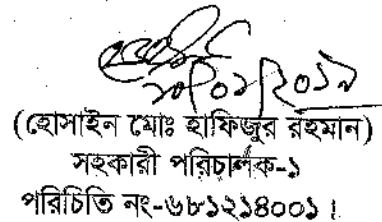 ২০/০১/২০১৯
(হোসাইন মোঃ হাফিজুর রহমান)
সহকারী পরিচালক-১
পরিচিতি নং-৬৮১২১৪০০১।